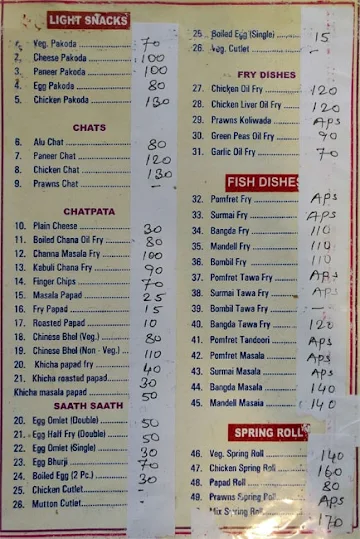 LIGHT SNACKS
1. Veg. Pakoda 70
2. Cheese Pakoda 100
3. Paneer Pakoda 100
4. Egg Pakoda 80
5. Chicken Pakoda 130
CHATS
6. Alu Chat 80
7. Paneer Chat 120
8. Chicken Chat 130
9. Prawns Chat –
CHATPATA
10. Plain Cheese 30
11. Boiled Chana Oil Fry 80
12. Channa Masala Fry 100
13. Kabuli Chana Fry 90
14. Finger Chips 70
15. Masala Papad 25
16. Fry Papad 15
17. Roasted Papad 10
18. Chinese Bhel (Veg.) 80
19. Chinese Bhel (Non - Veg.) 110
20. Khicha papad fry 40
21. Khicha roasted papad 30
Khicha masala papad 50
SAATH SAATH
20. Egg Omlet (Double) 50
21. Egg Half Fry (Double) 50
22. Egg Omlet (Single) 30
23. Egg Bhurji 70
24. Boiled Egg (2 Pc.) 30
25. Chicken Cutlet -
26. Mutton Cutlet -
25. Boiled Egg (Single) 15
26. Veg. Cutlet –
FRY DISHES
27. Chicken Oil Fry 120
28. Chicken Liver Oil Fry 120
29. Prawns Koliwada APS
30. Green Peas Oil Fry 90
31. Garlic Oil Fry 70
FISH DISHES
32. Pomfret Fry APS
33. Surmai Fry APS
34. Bangda Fry 110
35. Mandeli Fry 110
36. Bombil Fry 110
37. Pomfret Tawa Fry APS
38. Surmai Tawa Fry APS
39. Bombil Tawa Fry –
40. Bangda Tawa Fry 120
41. Pomfret Tandoori APS
42. Pomfret Masala APS
43. Surmai Masala APS
44. Bangda Masala 140
45. Mandeli Masala 140
SPRING ROLL
46. Veg. Spring Roll 140
47. Chicken Spring Roll 160
48. Papad Roll 80
49. Prawns Spring Roll APS
Mix Spring Roll 170